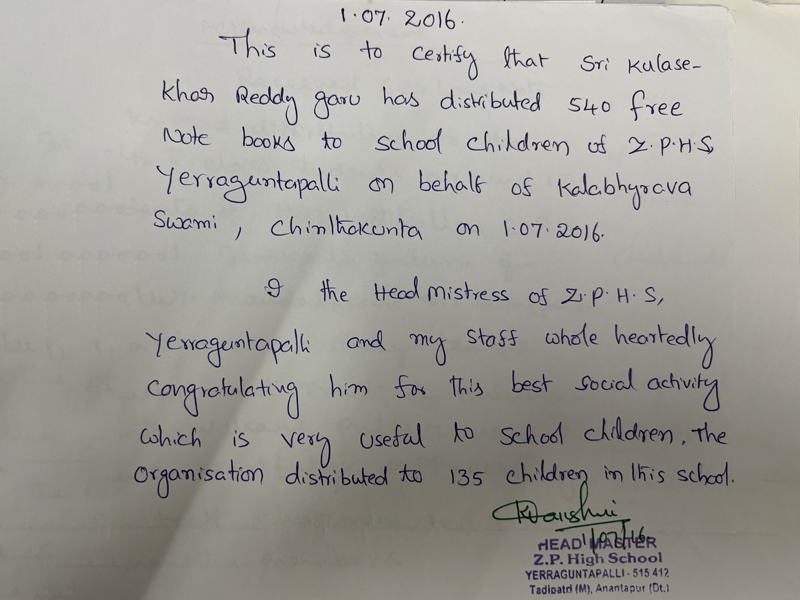 1.07.2016.
This is to certify that Sri Kulase-
khar Reddy garu has distributed 540 free
Note books to school children of Z.P.H.S,
Yerraguntapalli on behalf of Kalabhyrava
Swami, Chinthakunta on 1.07.2016.
I the Head Mistress of Z.P.H.S,
Yerraguntapalli and my staff whole heartedly
congratulating him for this best social activity
which is very useful to school children. The
organisation distributed to 135 children in this school.
1/07/16
HEAD MASTER
Z.P. High School
YERRAGUNTAPALLI - 515 412
Tadipatri (M), Anantapur (Dt.)